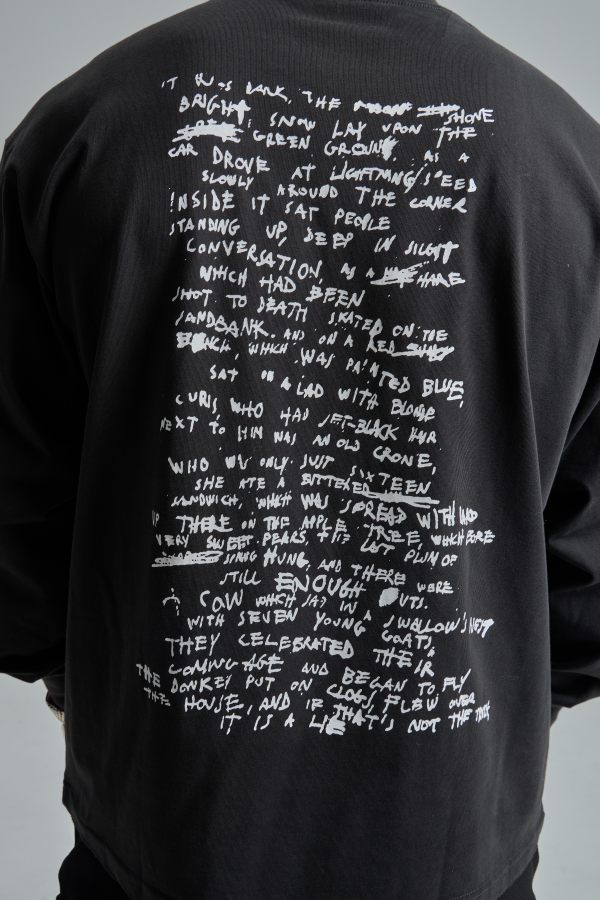 IT WAS DARK, THE MOON SHONE
BRIGHT, SNOW LAY UPON THE
GREEN GROUNT, AS A
CAR DROVE AT LIGHTNING/SPEED
SLOWLY AROUND THE CORNER
INSIDE IT SAT PEOPLE
STANDING UP, DEEP IN SILENT
CONVERSATION, AS A HARE
WHICH HAD BEEN
SHOT TO DEATH SKATED ON THE
SANDBANK. AND ON A RED
BENCH, WHICH WAS PAINTED BLUE,
SAT ON A LAD WITH BLONDE
CURLS, WHO HAD JET-BLACK HAIR
NEXT TO HIM WAS AN OLD CRONE,
WHO WAS ONLY JUST SIXTEEN
SHE ATE A BUTTERED
SANDWICH, WHICH WAS SPREAD WITH LARD
UP THERE ON THE APPLE TREE WHICH BORE
VERY SWEET PEARS, THE LAST PLUM OF
SPRING HUNG, AND THERE WERE
STILL ENOUGH NUTS.
A COW WHICH SAT IN A SWALLOW'S NEST
WITH SEVEN YOUNG GOATS,
THEY CELEBRATED THEIR
COMING AGE AND BEGAN TO FLY
THE DONKEY PUT ON CLOGS, FLEW OVER
THE HOUSE, AND IF THAT'S NOT THE TRUE
IT IS A LIE